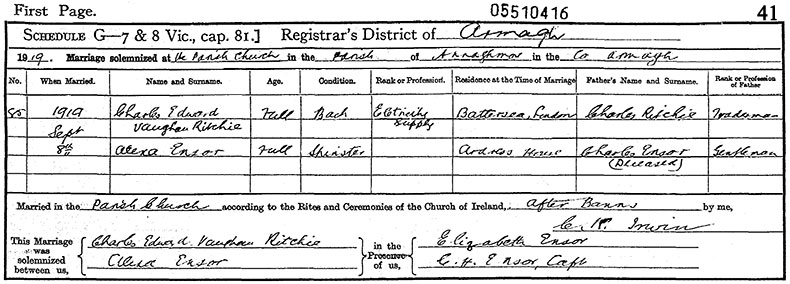 First Page. 05510416 41
SCHEDULE G—7 & 8 Vic., cap. 81.] Registrar's District of Armagh
1919. Marriage solemnized at the Parish Church in the Parish of Annaghmore in the Co Armagh
No. When Married. Name and Surname. Age. Condition. Rank or Profession. Residence at the Time of Marriage Father's Name and Surname. Rank or Profession of Father
85 1919 Sept 8th Charles Edward Vaughan Ritchie Full Bach Electricity Supply Battersea, London Charles Ritchie Tradesman
Alexa Ensor Full Spinster Ardress House Charles Ensor (Deceased) Gentleman
Married in the Parish Church according to the Rites and Ceremonies of the Church of Ireland, After Banns by me,
C. K. Irwin
This Marriage was solemnized between us, Charles Edward Vaughan Ritchie in the Presence of us, Elizabeth Ensor
Alexa Ensor C. H. Ensor, Capt